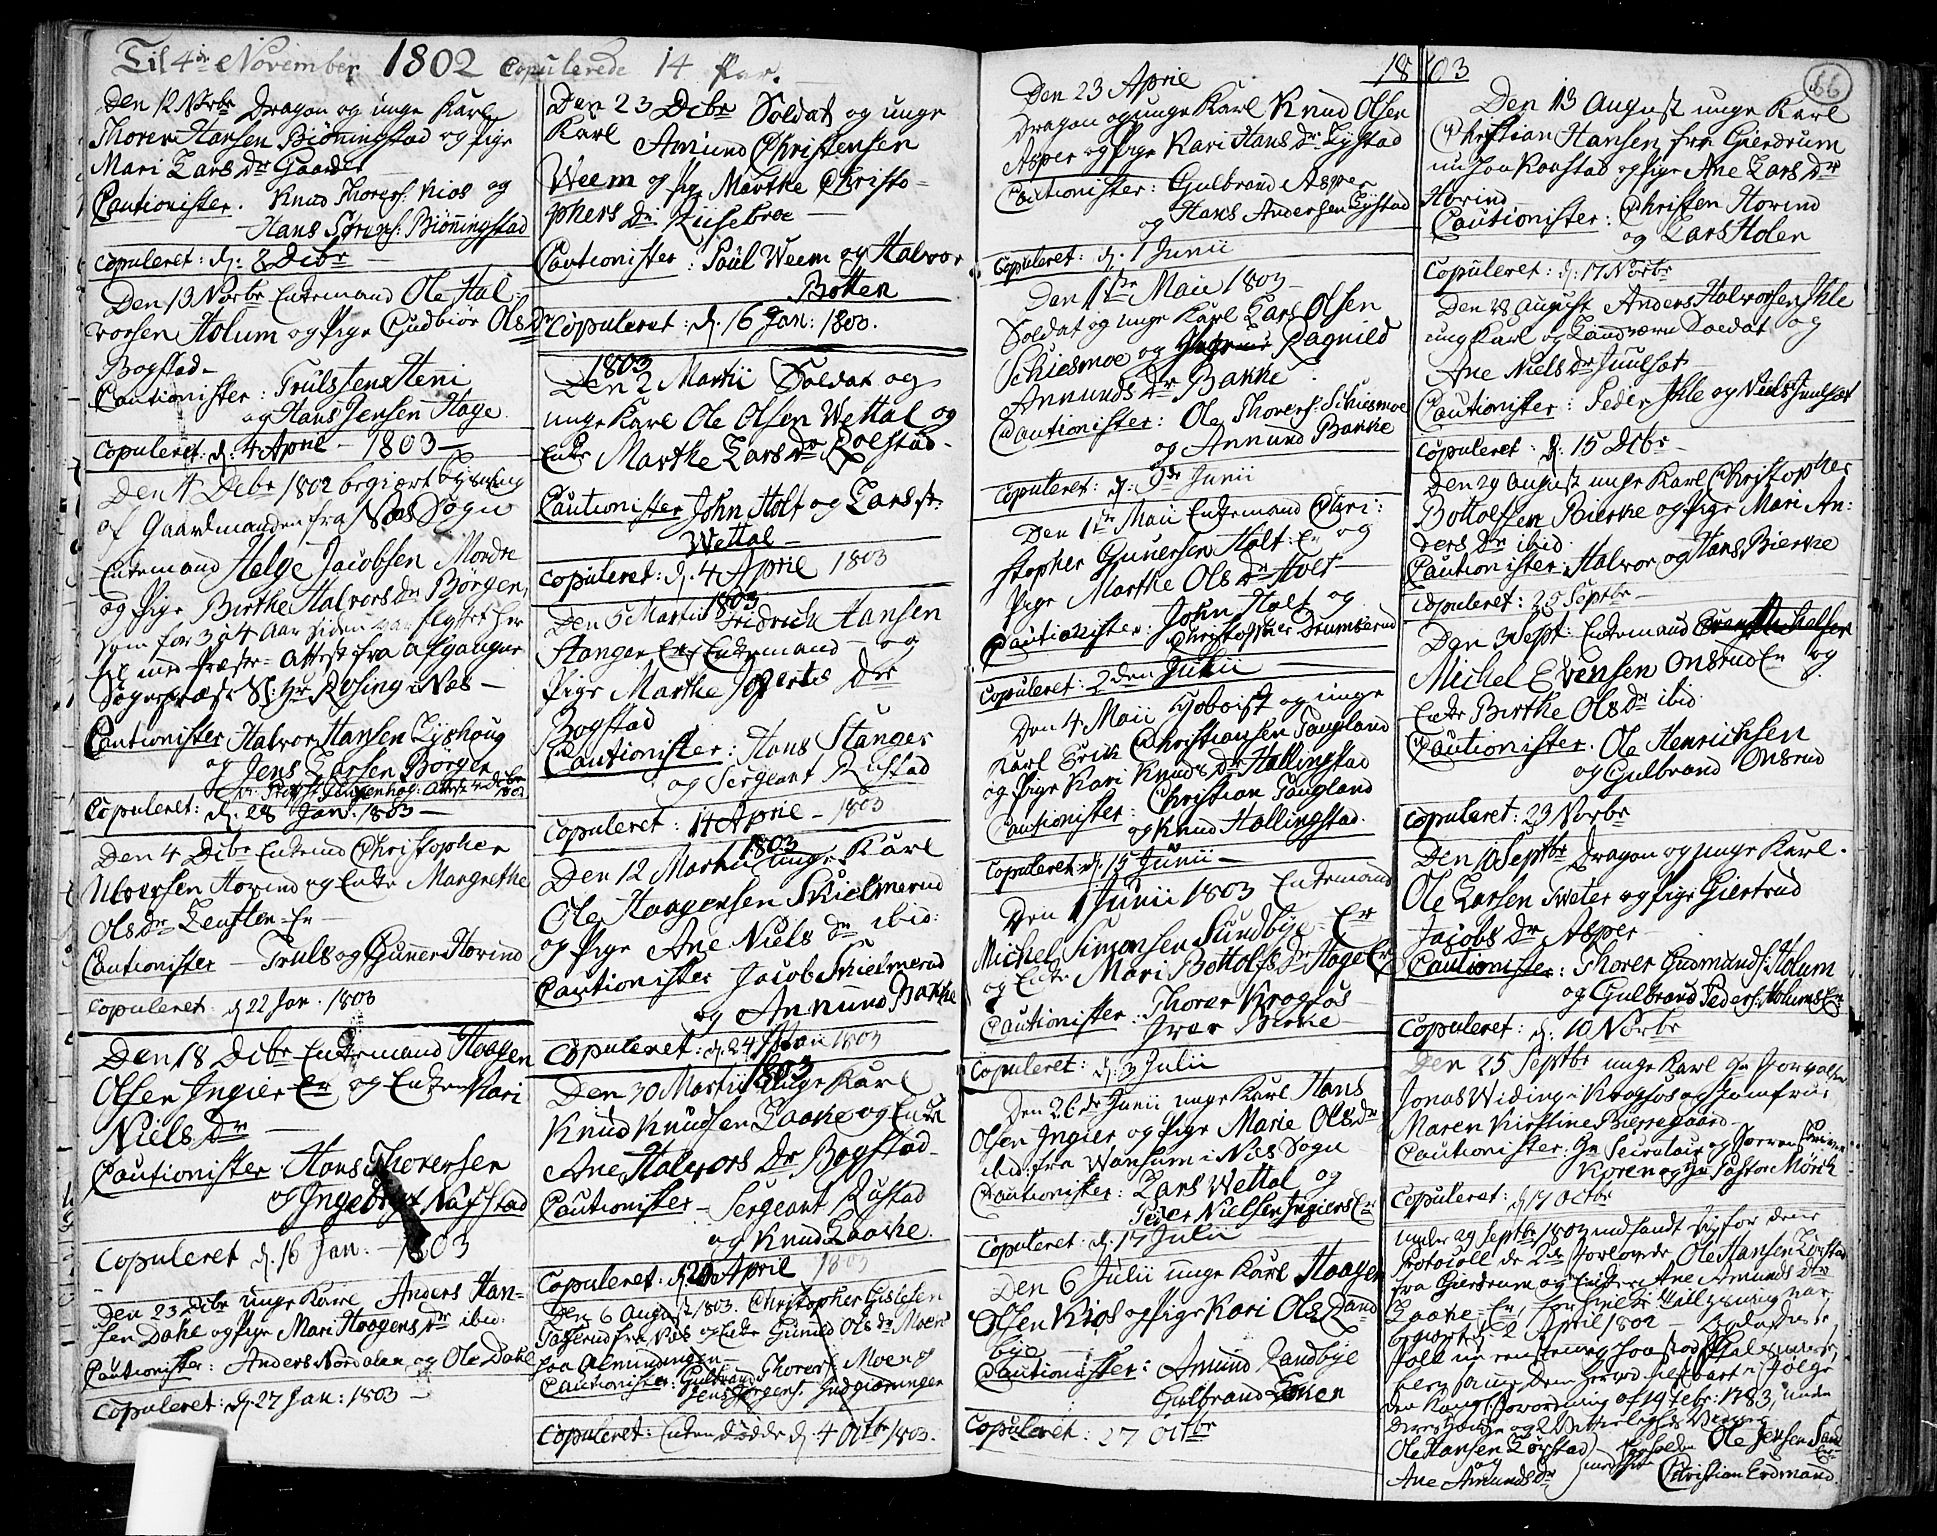 Til 4de November 1802 Copulerede 14 Par.
Den 12 Novbr Dragon og unge Karl
Thorer Hansen Biønningstad og Pige
Mari Lars Dr Gaarder
Cautionister. Knud Thorers: Kios og
Hans Sørens: Biønningstad
Copuleret: d: 8 Decbr
Den 13 Novbr Enkemand Ole Hal-
vorsen Holum og Pige Gudbiør Ols Dr
Bogstad
Cautionister: Truls Jens Heni
og Hans Jensen Hage.
Copuleret: d: 4 April - 1803 -
Den 4 Decbr 1802 begiært Lysning
af Gaardmanden fra Næs Sogn
Enkemand Helge Jacobsen Mordre
og Pige Birthe Halvors Dr Børgen,
som for 3 a 4 Aar siden var flyttet her
til med Præste-Attest fra afgangne
Sognepræst S: Hr Rosing i Næs -
Cautionister Halvor Hansen Lyshoug
og Jens Larsen Børgen
Copuleret: d: 28 Jan: 1803 -
Den 4 Decbr Enkemd Christopher
Ulversen Hovind og Enke Margrethe
Ols Dr
Cautionister - Truls og Guner Hovind
Copuleret d 22 Jan. 1803
Den 18 Decbr Enkemand Haagen
Olsen Ingier Er og Enken Kari
Niels Dr -
Cautionister Hans Thorersen
og Ingebrigt Kafstad
Copuleret d. 16 Jan: - 1803
Den 23 Decbr unge Karl Anders Han-
sen Dahl og Pige Mari Haagens Dr ibid:
Cautionister: Anders Nordalen og Ole Dahl
Copuleret: d 27 Jan: 1803 -
Den 23 Decbr Soldat og unge
Karl Amund Christensen
Weem og Pig Marthe Christo-
phers Dr Risebroe -
Cautionister: Poul Weem og Halvor
Botten
Copuleret: d. 16 Jan: 1803.
1803
Den 2 Martii Soldat og
unge Karl Ole Olsen Wettal og
Enke Marthe Lars Dr Rolstad -
Cautionister John Holt og Lars
Wettal -
Copuleret: d. 4 April 1803
1803
Den 5 Martii Fridrich Hansen
Stanger Er Enkemand og
Pige Marthe Dr
Bogstad
Cautionister: Hans Stanger
og Sergeant Rustad
Copuleret: 14 April - 1803
1803
Den 12 Martii unge Karl
Ole Haagensen Skielmerud
og Pige Ane Niels Dr ibid:
Cautionister Jacob Skielmerud
og Annund Bakke
Copuleret: d. 24 1803
1803
Den 30 Martii unge Karl
Knud Knudsen Laake og Enke
Ane Halvors Dr Bogstad -
Cautionister - Sergeant Rustad
og Knud Laake.
Copuleret: d 20 April 1803
Den 6 August 1803. Christopher Gislesen
Tagerud fra Næs og Enke Gunild Ols Dr Moen
paa Almindingen
Cautionister: Gulbrand Thorers: Moen og
Jens Jørgens: Indgiæringen
Copuleret: Enken døde d. 4 Octbr 1803.
1803
66
Den 23 April
Dragon og unge Karl Knud Olsen
Asper og Pige Kari Hans Dr Lystad
Cautionister: Gulbrand Asper
og Hans Andersen Lystad
Copuleret: d. 1 Junii
Den 1ste Maii 1803 -
Soldat og unge Karl Lars Olsen
Schiesmoe og Ragnild
Annunds Dr Bakke
Cautionister: Ole Thorers: Schiesmoe
og Annund Bakke
Copuleret: d: 9de Junii
Den 1ste Maii Enkemand Chri:
stopher Gunersen Holt: Er og
Pige Marthe Ols Dr Holt -
Cautionister: John Holt og
Christopher Drumserud
Copuleret: 2den Julii
Den 4 Maii Hoboist og unge
Karl Erik Christiansen Taugland
og Pige Kari Knuds Dr Hallingstad
Cautionister: Christian Taugland
og Knud Hallingstad.
Copuleret: d. 15 Junii -
Den 1 Junii 1803 Enkemand
Michel Simonsen Sundbye - Er
og Enke Mari Bottolfs Dr Hage Er
Cautionister: Thorer Krogsøs -
Iver Birke -
Copuleret: d: 3 Julii
Den 26de Junii unge Karl Hans
Olsen Ingier og Pige Marie Ols Dr
ibid: fra Wansum i Næs Sogn
Cautionister: Lars Wettal og
Peder Nielsen Ingiers Er
Copuleret: d. 17 Julii
Den 6 Julii unge Karl Haagen
Olsen Kios og Pige Kari Ols Dr Rand
bye
Cautionister: Amund Randbye
Gulbrand Loken
Copuleret: 27 Octbr
Den 13 August unge Karl
Christian Hansen fra Gierdrum
nu paa Raastad og Pige Ane Lars Dr
Hovind
Cautionister: Christen Hovind
og Lars Holen
Copuleret: d. 17 Novbr
Den 28 August Anders Halvorsen Ihle
ung Karl og Landværn Soldat og
Ane Niels Dr Juulsæt -
Cautionister: Peder Ihle og Niels Juulsæt
Copuleret: d. 15 Decbr -
Den 29 August unge Karl Christopher
Bottolfsen Bierke og Pige Mari An:
ders Dr ibid.
Cautionister: Halvor og Hans Bierke
Copuleret: 25 Septbr -
Den 3 Sept: Enkemand
Michel Evensen Onsrud Er og
Enke Birthe Ols Dr ibid.
Cautionister. Ole Henrichsen
og Gulbrand Onsrud
Copuleret: 23 Novbr
Den 10 Septbr Dragon og unge Karl.
Ole Larsen Sveter og Pige Giertrud
Jacobs Dr Asper -
Cautionister: Thorer Gudmunds: Holum
og Gulbrand Peders: Holums Er
Copuleret: d: 10 Novbr
Den 25 Septbr unge Karl Hr Forvalter
Jonas Widing - Krogsøs og Jomfrue
Maren Kirstine Bierregaard -
Cautionister: Hr Secretair og Sorenskriver
Koren og Hr Pastor Mørch
Copuleret: d 17 Octbr
under 29 Septbr 1803 indsandt jeg for denne
Protocoll de 2de Forlovede Ole Hansen Lørstad
fra Gierdrum og Enke Ane Amunds Dr
Laake - Er, for hvilke Tillysning var
begiært d. 2 April 1802 -
den Kongl: Forordning af 19 Febr: 1783, under
deres Hænder og 2 Vitterligheds Vidner
Ole Hansen Lørstad Ole Jensen Sand
og
Ane Amunds Dr Christian Erdmand.